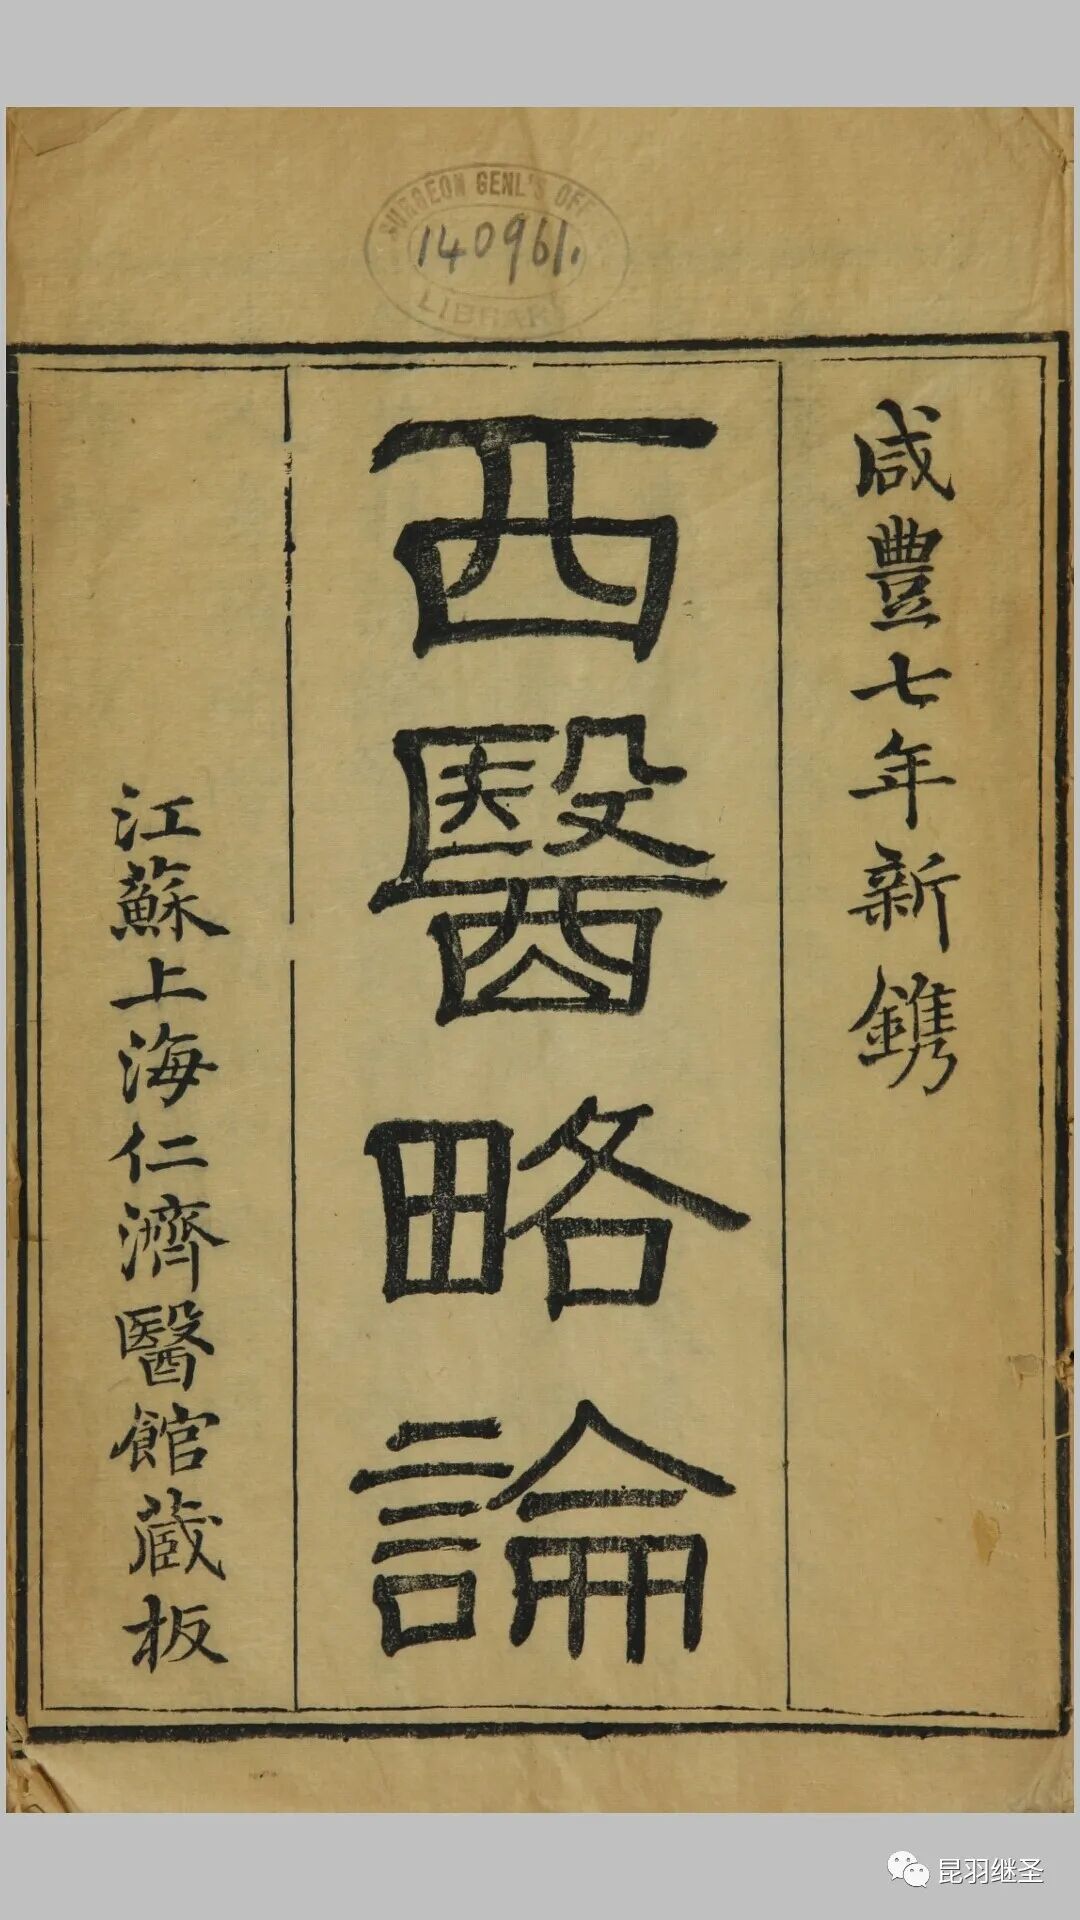 SURGEON GENL'S OFF
140961.
LIBRARY
咸豐七年新鐫
西醫略論
江蘇上海仁濟醫館蔵板
昆羽继圣